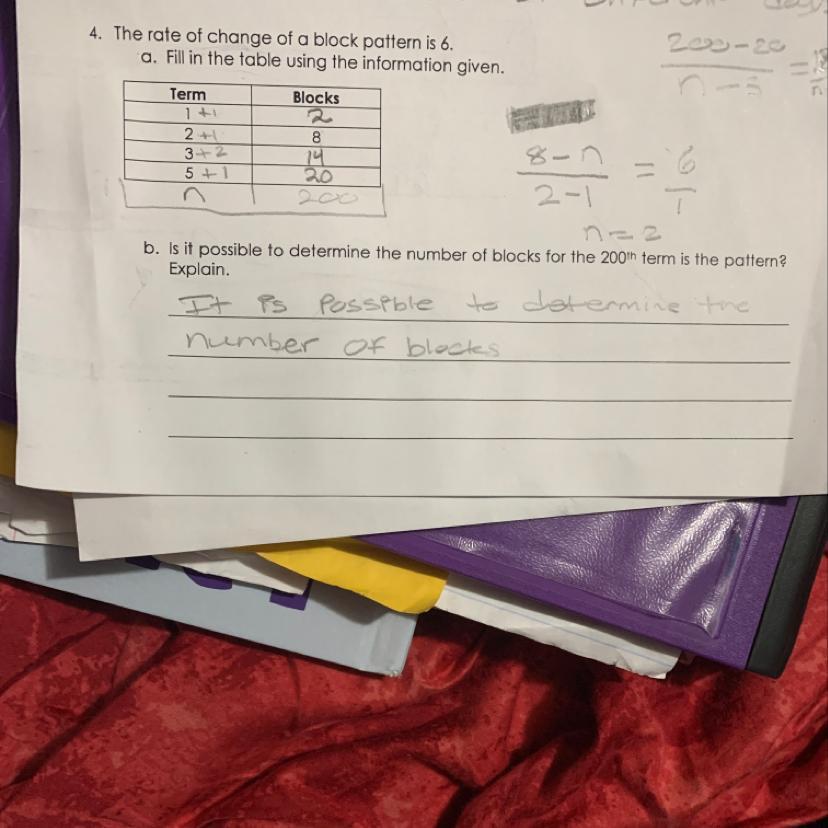 4. The rate of change of a block pattern is 6.
a. Fill in the table using the information given.
200-20
n-5
=
Term Blocks
1 +1 2
2 +1 8
3 +2 14
5 +1 20
n 200
8-n
2-1
= 6
1
n=2
b. Is it possible to determine the number of blocks for the 200th term is the pattern?
Explain.
It is possible to determine the
number of blocks